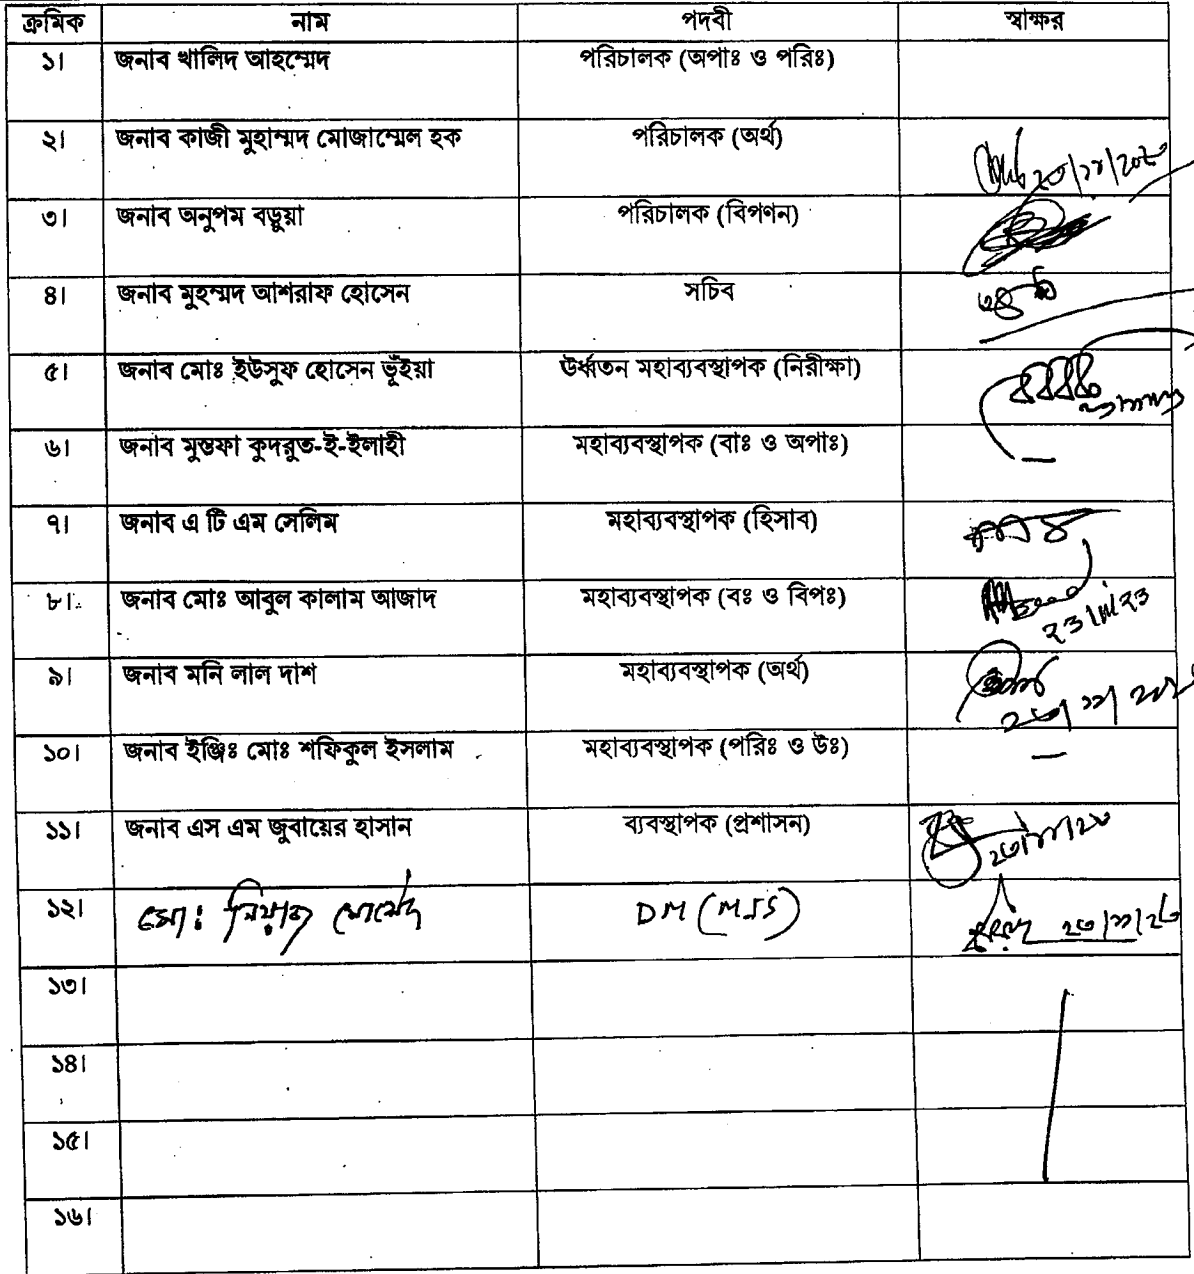 ক্রমিক নাম পদবী স্বাক্ষর
১। জনাব খালিদ আহম্মেদ পরিচালক (অপাঃ ও পরিঃ)
২। জনাব কাজী মুহাম্মদ মোজাম্মেল হক পরিচালক (অর্থ)
৩। জনাব অনুপম বড়ুয়া পরিচালক (বিপণন)
৪। জনাব মুহম্মদ আশরাফ হোসেন সচিব
৫। জনাব মোঃ ইউসুফ হোসেন ভূঁইয়া উর্ধ্বতন মহাব্যবস্থাপক (নিরীক্ষা)
৬। জনাব মুস্তফা কুদরুত-ই-ইলাহী মহাব্যবস্থাপক (বাঃ ও অপাঃ) —
৭। জনাব এ টি এম সেলিম মহাব্যবস্থাপক (হিসাব)
৮। জনাব মোঃ আবুল কালাম আজাদ মহাব্যবস্থাপক (বঃ ও বিপঃ)
৯। জনাব মনি লাল দাশ মহাব্যবস্থাপক (অর্থ)
১০। জনাব ইঞ্জিঃ মোঃ শফিকুল ইসলাম মহাব্যবস্থাপক (পরিঃ ও উঃ) —
১১। জনাব এস এম জুবায়ের হাসান ব্যবস্থাপক (প্রশাসন)
১২। মোঃ DM (MIS)
১৩।
১৪।
১৫।
১৬।